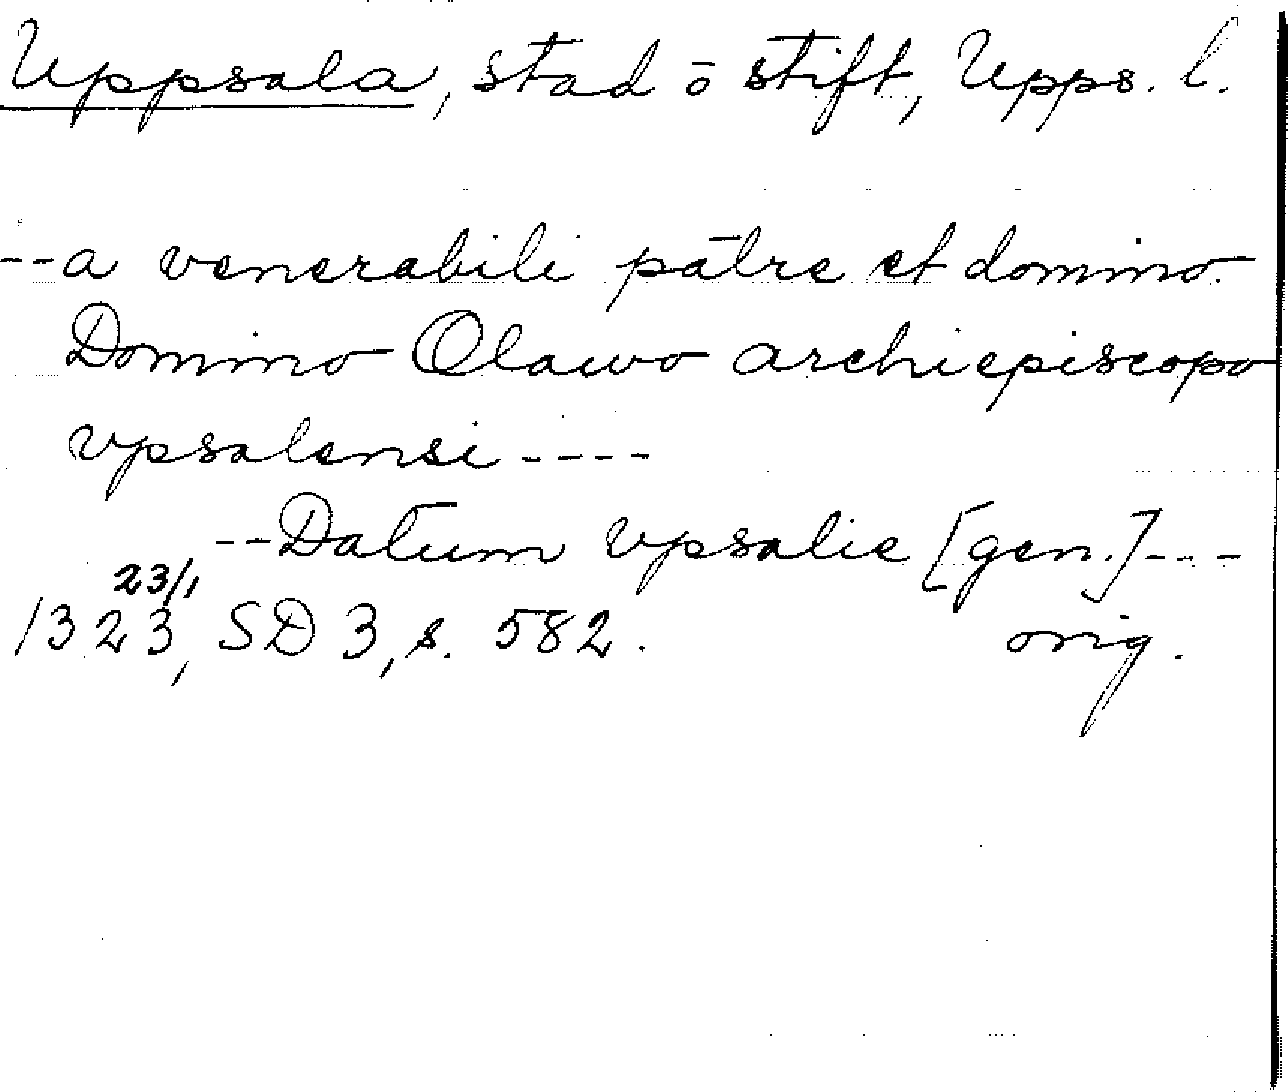 Uppsala, stad ō stift, Upps. l.
--a venerabili patre et domino.
Domino Olawo archiepiscopo
vpsalensi ----
--Datum vpsalie [gen.]---
23/1
1323, SD 3, s. 582. orig.